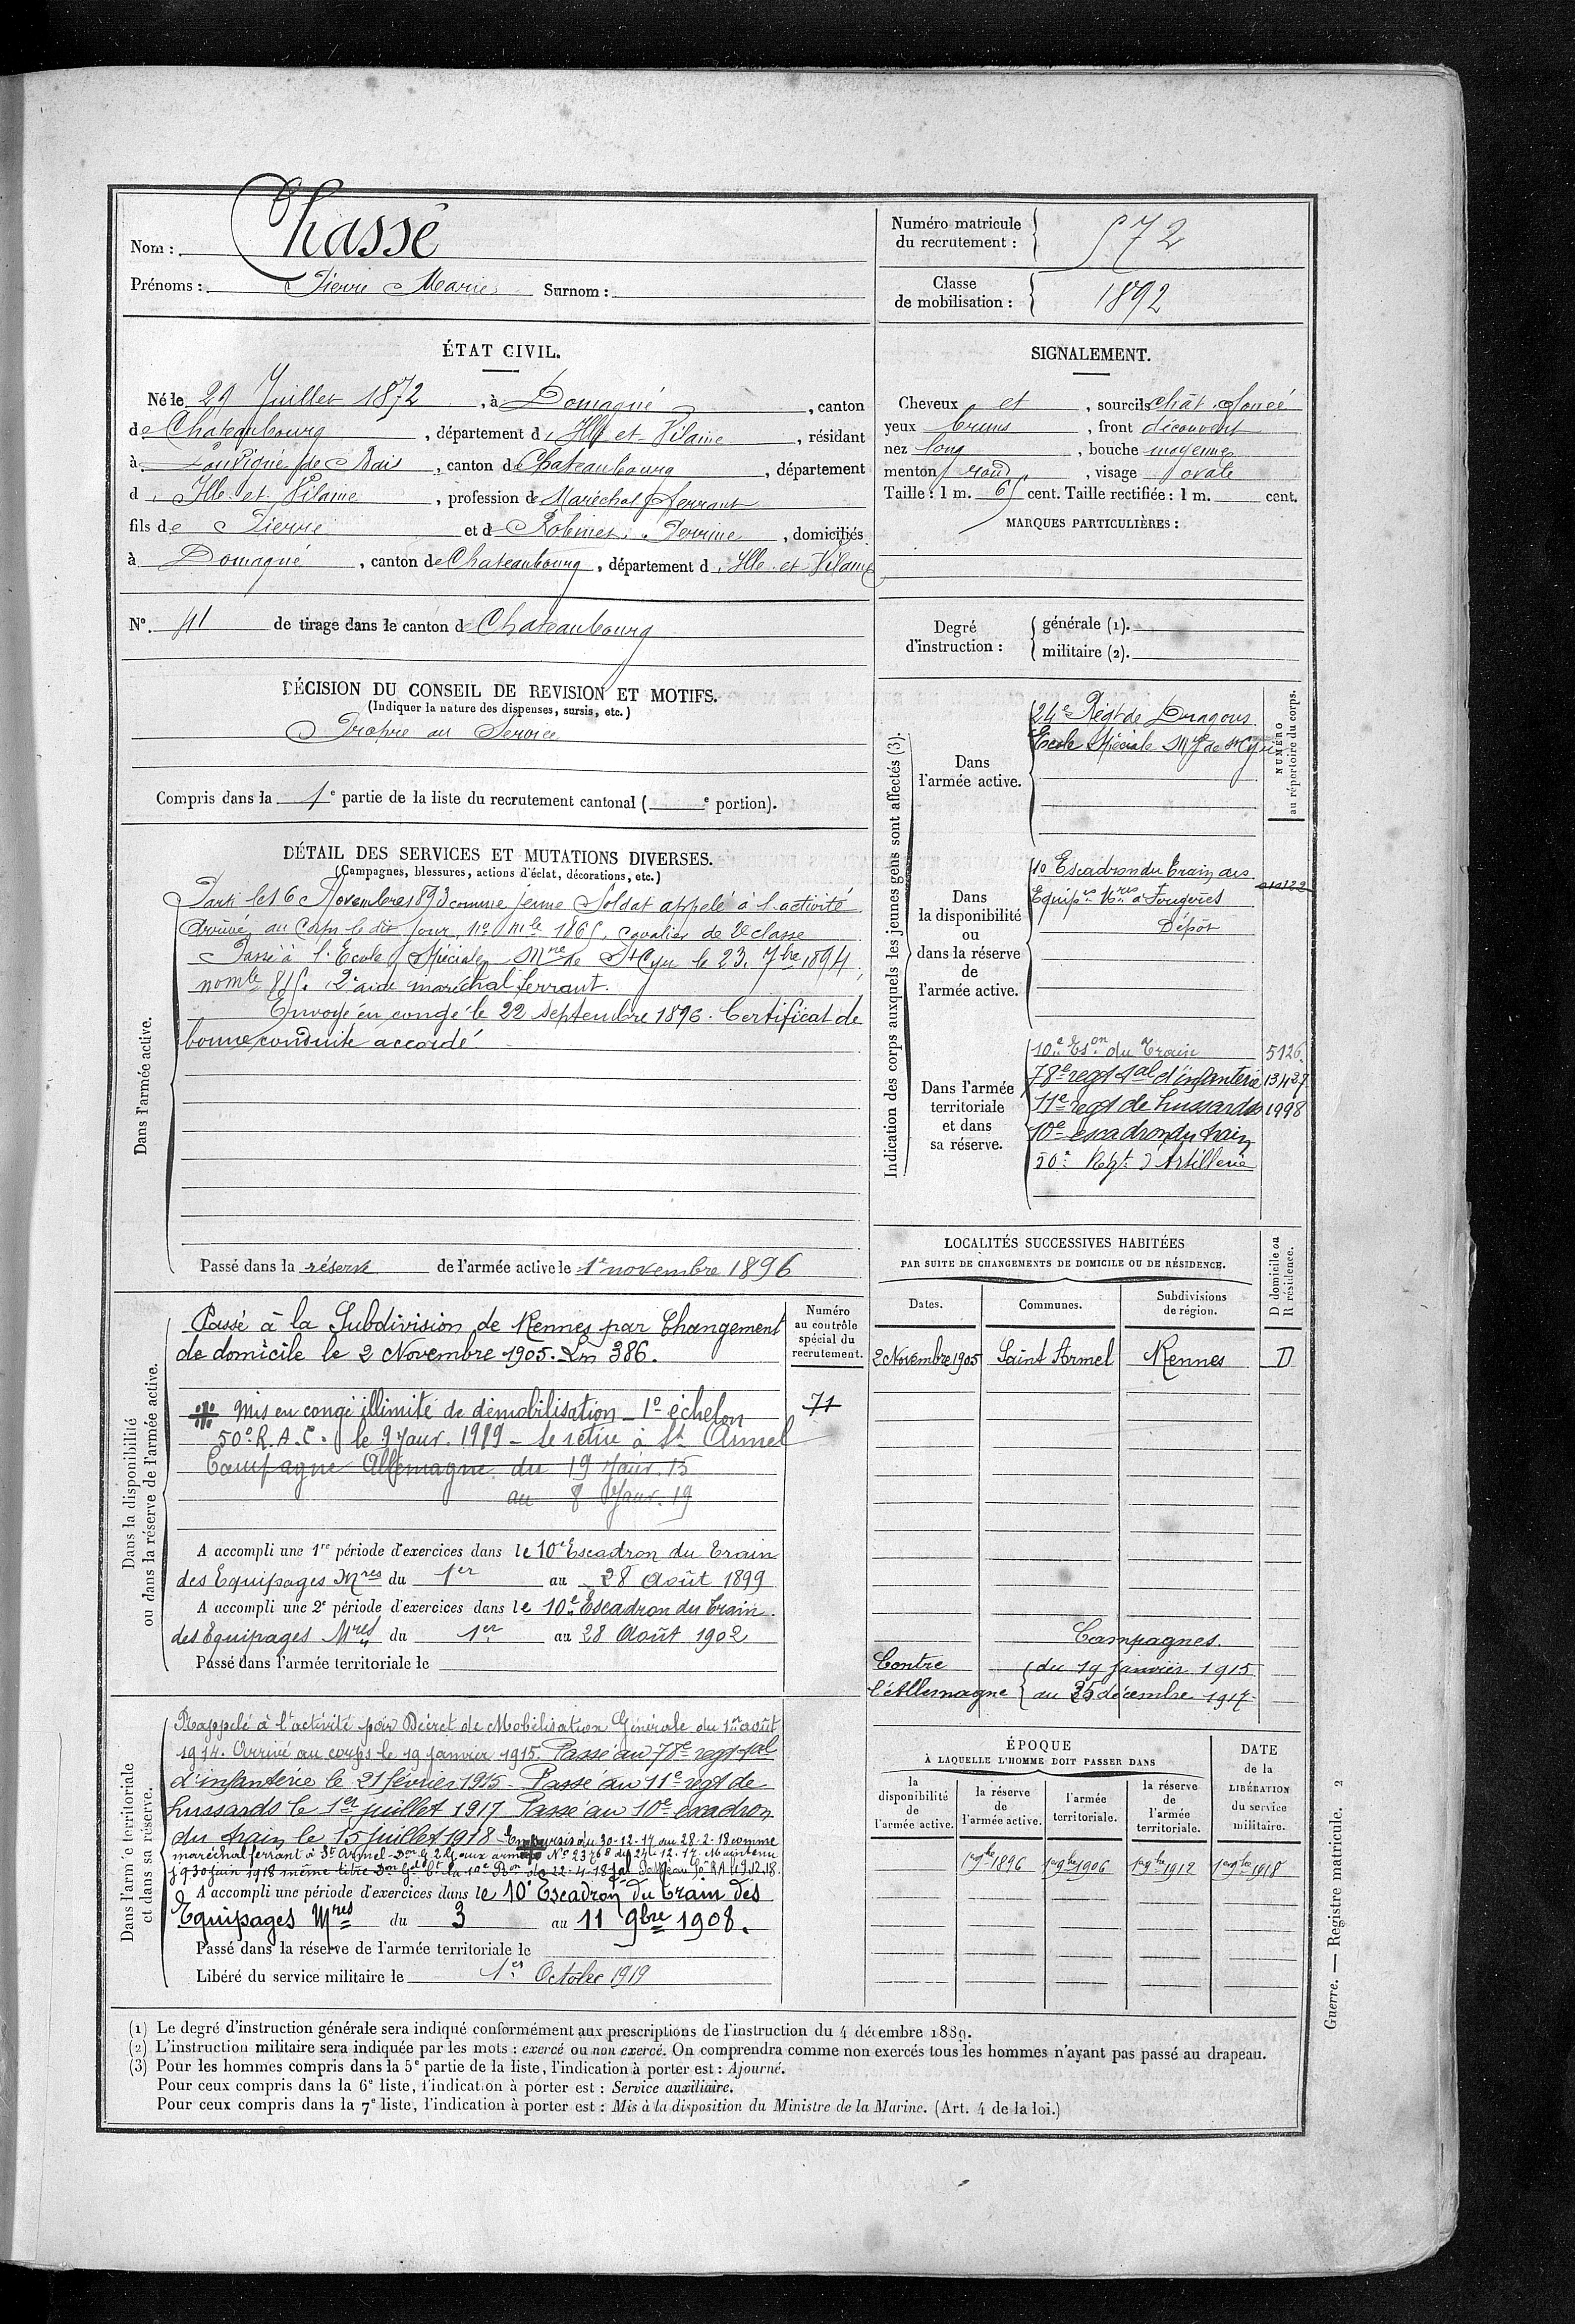 Nom : Chassé
Prénoms : Pierre Marie Surnom :
Numéro matricule
du recrutement : 572
Classe
de mobilisation : 1892
ÉTAT CIVIL.
Né le 29 Juillet 1872, à Domagné, canton
de Chateaubourg, département d'Ille et Vilaine, résidant
à Louvigné de Bais, canton de Chateaubourg, département
d'Ille et Vilaine, profession de Maréchal ferrant
fils de Pierre et de Robinet Perrine, domiciliés
à Domagné, canton de Chateaubourg, département d'Ille et Vilaine
N° 41 de tirage dans le canton de Chateaubourg
SIGNALEMENT.
Cheveux et, sourcils chât. foncé
yeux bruns, front découvert
nez long, bouche moyenne
menton rond, visage ovale
Taille : 1 m. 65 cent. Taille rectifiée : 1 m. cent.
MARQUES PARTICULIÈRES :
Degré
d'instruction :
générale (1).
militaire (2).
DÉCISION DU CONSEIL DE REVISION ET MOTIFS.
(Indiquer la nature des dispenses, sursis, etc.)
Propre au Service
Compris dans la 1e partie de la liste du recrutement cantonal ( e portion).
DÉTAIL DES SERVICES ET MUTATIONS DIVERSES.
(Campagnes, blessures, actions d'éclat, décorations, etc.)
Dans l'armée active.
Parti le 16 Novembre 1893 comme jeune Soldat appelé à l'activité
Arrivé au Corps le dit jour, no mle 1865, cavalier de 2e classe
Passé à l'Ecole Spéciale Mre de St Cyr le 23 7bre 1894,
no mle 815. 2e aide maréchal ferrant.
Envoyé en congé le 22 septembre 1896. Certificat de
bonne conduite accordé
Passé dans la réserve de l'armée active le 1er novembre 1896
Indication des corps auxquels les jeunes gens sont affectés (3).
NUMÉRO
au répertoire du corps.
Dans
l'armée active.
24e Régt de Dragons
Ecole Spéciale Mre de St Cyr
Dans
la disponibilité
ou
dans la réserve
de
l'armée active.
10 Escadron du train des
Equip es Mres à Fougères
Dépôt
Dans l'armée
territoriale
et dans
sa réserve.
10e Eson du Train 5126
78e regt tal d'infanterie 13427
11e regt de hussards 1998
10e escadron du train
50e Régt d'Artillerie
Dans la disponibilité
ou dans la réserve de l'armée active.
Numéro
au contrôle
spécial du
recrutement.
71
Passé à la Subdivision de Rennes par Changement
de domicile le 2 Novembre 1905. Ln 386.
Mis en congé illimité de démobilisation 1e échelon
50e R.A.C. le 9 Janv. 1919 - Se retire à St Armel
Campagne Allemagne du 19 Janv. 15
au 8 Janv. 19
A accompli une 1re période d'exercices dans le 10e Escadron du Train
des Equipages Mres du 1er au 28 Août 1899
A accompli une 2e période d'exercices dans le 10e Escadron du Train
des Equipages Mres du 1er au 28 Août 1902
Passé dans l'armée territoriale le
LOCALITÉS SUCCESSIVES HABITÉES
PAR SUITE DE CHANGEMENTS DE DOMICILE OU DE RÉSIDENCE.
D domicile ou
R résidence.
Dates. Communes. Subdivisions
de région.
2 Novembre 1905 Saint Armel Rennes D
Campagnes.
Contre du 19 janvier 1915
l'Allemagne au 25 décembre 1917
Dans l'armée territoriale
et dans sa réserve.
Rappelé à l'activité par Décret de Mobilisation Générale du 1er août
1914. Arrivé au corps le 19 janvier 1915. Passé au 78e regt tal
d'infanterie le 21 février 1915 - Passé au 11e regt de
hussards le 1er juillet 1917 Passé au 10e escadron
du train le 15 juillet 1918 - En sursis du 30-12-17 au 28-2-18 comme
maréchal ferrant à St Armel aux armées No 23768 du 24-12-17. Maintenu
30 juin 1918 même titre 22-4-18
A accompli une période d'exercices dans le 10e Escadron du Train des
Equipages Mres du 3 au 11 9bre 1908.
Passé dans la réserve de l'armée territoriale le
Libéré du service militaire le 1er Octobre 1919
ÉPOQUE
À LAQUELLE L'HOMME DOIT PASSER DANS
DATE
de la
LIBÉRATION
du service
militaire.
la
disponibilité
de
l'armée active.
la réserve
de
l'armée active.
l'armée
territoriale.
la réserve
de
l'armée
territoriale.
1er 9bre 1896 1er 9bre 1906 1er 9bre 1912 1er 9bre 1918
(1) Le degré d'instruction générale sera indiqué conformément aux prescriptions de l'instruction du 4 décembre 1889.
(2) L'instruction militaire sera indiquée par les mots : exercé ou non exercé. On comprendra comme non exercés tous les hommes n'ayant pas passé au drapeau.
(3) Pour les hommes compris dans la 5e partie de la liste, l'indication à porter est : Ajourné.
Pour ceux compris dans la 6e liste, l'indication à porter est : Service auxiliaire.
Pour ceux compris dans la 7e liste, l'indication à porter est : Mis à la disposition du Ministre de la Marine. (Art. 4 de la loi.)
Guerre. — Registre matricule. 2